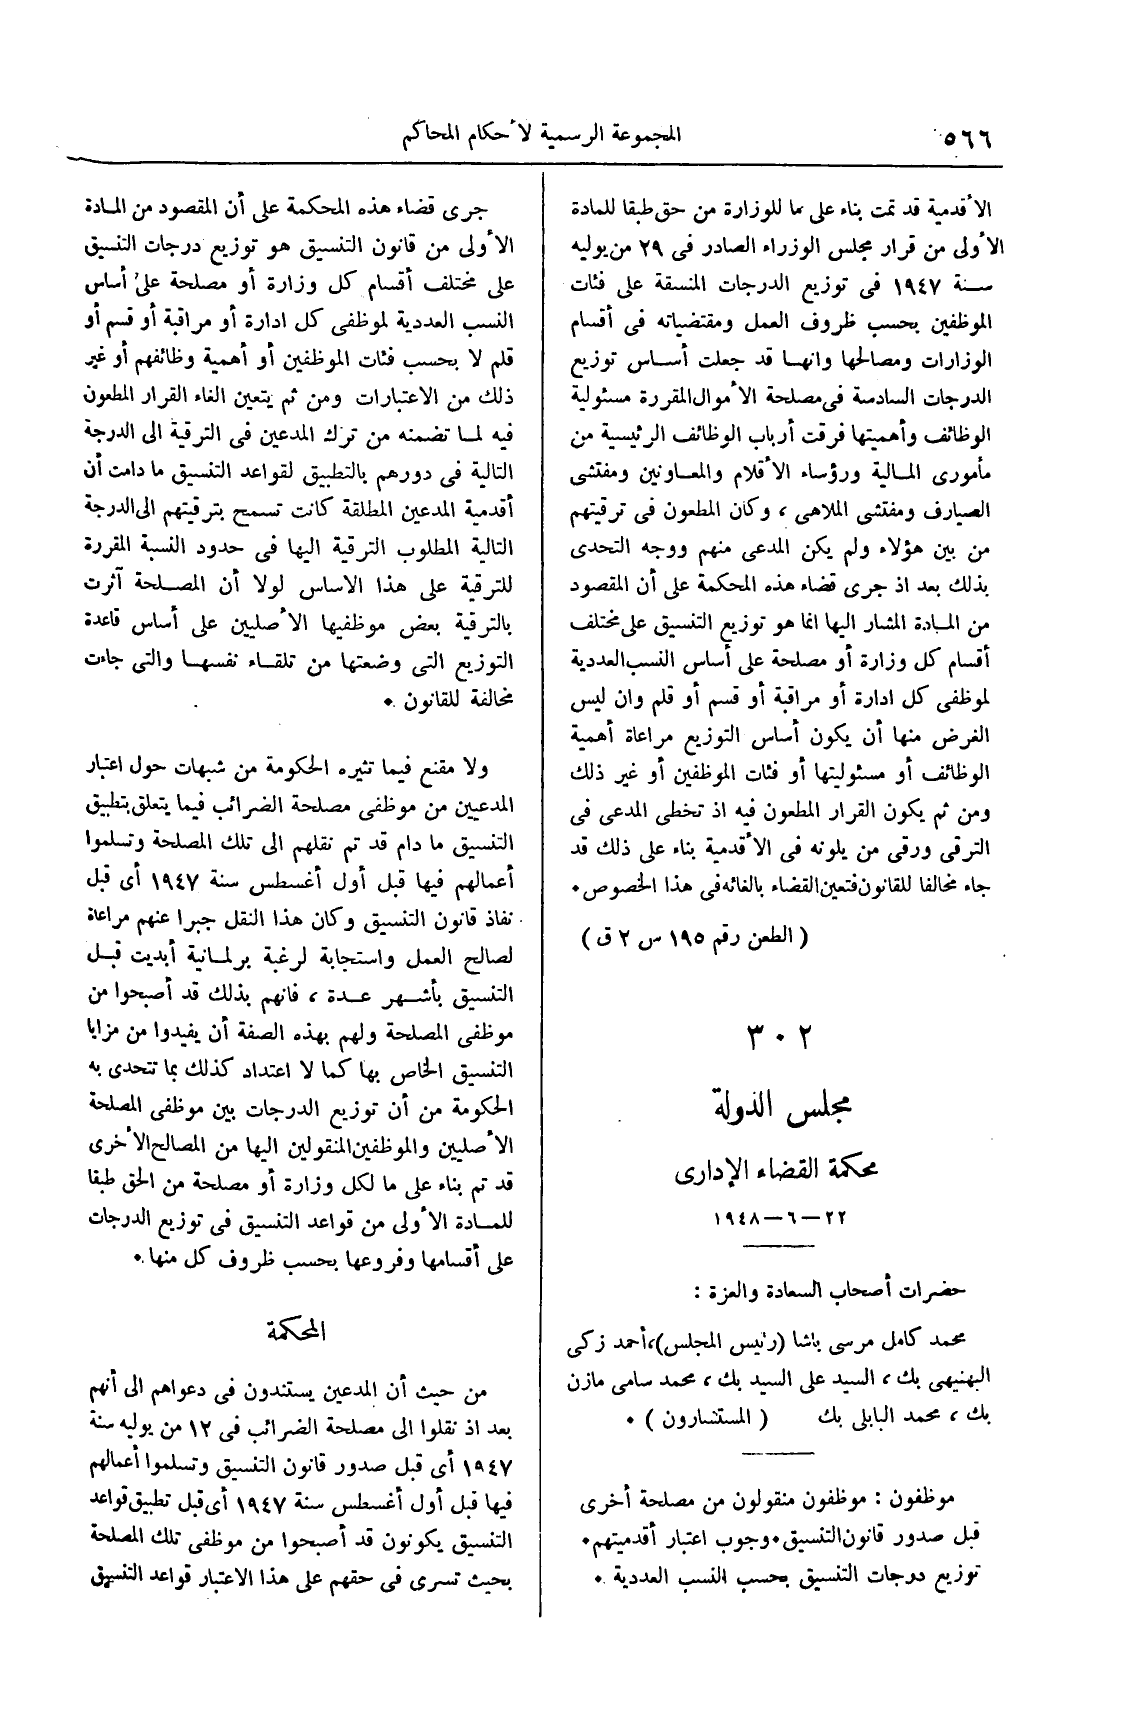 ٥٦٦
المجموعة الرسمية لأحكام المحاكم
الأقدمية قد تمت بناء على ما للوزارة من حق طبقا للمادة
الأولى من قرار مجلس الوزراء الصادر فى ٢٩ من يوليه
سنة ١٩٤٧ فى توزيع الدرجات المنسقة على فئات
الموظفين بحسب ظروف العمل ومقتضياته فى أقسام
الوزارات ومصالحها وانها قد جعلت أساس توزيع
الدرجات السادسة فى مصلحة الأموال المقررة مسئولية
الوظائف وأهميتها فرقت أرباب الوظائف الرئيسية من
مأمورى المالية ورؤساء الأقلام والمعاونين ومفتشى
الصيارف ومفتشى الملاهى ، وكان المطعون فى ترقيتهم
من بين هؤلاء ولم يكن المدعى منهم ووجه التحدى
بذلك بعد اذ جرى قضاء هذه المحكمة على أن المقصود
من المادة المشار اليها انما هو توزيع التنسيق على مختلف
أقسام كل وزارة أو مصلحة على أساس النسب العددية
لموظفى كل ادارة أو مراقبة أو قسم أو قلم وان ليس
الغرض منها أن يكون أساس التوزيع مراعاة أهمية
الوظائف أو مسئوليتها أو فئات الموظفين أو غير ذلك
ومن ثم يكون القرار المطعون فيه اذ تخطى المدعى فى
الترقى ورقى من يلونه فى الأقدمية بناء على ذلك قد
جاء مخالفا للقانون فتعين القضاء بالغائه فى هذا الخصوص ٠
( الطعن رقم ١٩٥ س ٢ ق )
٣٠٢
مجلس الدولة
محكمة القضاء الإدارى
٢٢ – ٦ – ١٩٤٨
حضرات أصحاب السعادة والعزة :
محمد كامل مرسى باشا (رئيس المجلس)، أحمد زكى
البهنيهى بك ، السيد على السيد بك ، محمد سامى مازن
بك ، محمد البابلى بك ( المستشارون ) ٠
موظفون : موظفون منقولون من مصلحة أخرى
قبل صدور قانون التنسيق ٠ وجوب اعتبار أقدميتهم ٠
توزيع درجات التنسيق بحسب النسب العددية ٠
جرى قضاء هذه المحكمة على أن المقصود من المادة
الأولى من قانون التنسيق هو توزيع درجات التنسيق
على مختلف أقسام كل وزارة أو مصلحة على أساس
النسب العددية لموظفى كل ادارة أو مراقبة أو قسم أو
قلم لا بحسب فئات الموظفين أو أهمية وظائفهم أو غير
ذلك من الاعتبارات ومن ثم يتعين الغاء القرار المطعون
فيه لما تضمنه من ترك المدعين فى الترقية الى الدرجة
التالية فى دورهم بالتطبيق لقواعد التنسيق ما دامت أن
أقدمية المدعين المطلقة كانت تسمح بترقيتهم الى الدرجة
التالية المطلوب الترقية اليها فى حدود النسبة المقررة
للترقية على هذا الاساس لولا أن المصلحة آثرت
بالترقية بعض موظفيها الأصليين على أساس قاعدة
التوزيع التى وضعتها من تلقاء نفسها والتى جاءت
مخالفة للقانون ٠
ولا مقنع فيما تثيره الحكومة من شبهات حول اعتبار
المدعيين من موظفى مصلحة الضرائب فيما يتعلق بتطبيق
التنسيق ما دام قد تم نقلهم الى تلك المصلحة وتسلموا
أعمالهم فيها قبل أول أغسطس سنة ١٩٤٧ أى قبل
نفاذ قانون التنسيق وكان هذا النقل جبرا عنهم مراعاة
لصالح العمل واستجابة لرغبة برلمانية أبديت قبل
التنسيق بأشهر عدة ، فانهم بذلك قد أصبحوا من
موظفى المصلحة ولهم بهذه الصفة أن يفيدوا من مزايا
التنسيق الخاص بها كما لا اعتداد كذلك بما تتحدى به
الحكومة من أن توزيع الدرجات بين موظفى المصلحة
الأصليين والموظفين المنقولين اليها من المصالح الأخرى
قد تم بناء على ما لكل وزارة أو مصلحة من الحق طبقا
للمادة الأولى من قواعد التنسيق فى توزيع الدرجات
على أقسامها وفروعها بحسب ظروف كل منها ٠
المحكمة
من حيث أن المدعين يستندون فى دعواهم الى أنهم
بعد اذ نقلوا الى مصلحة الضرائب فى ١٢ من يوليه سنة
١٩٤٧ أى قبل صدور قانون التنسيق وتسلموا أعمالهم
فيها قبل أول أغسطس سنة ١٩٤٧ أى قبل تطبيق قواعد
التنسيق يكونون قد أصبحوا من موظفى تلك المصلحة
بحيث تسرى فى حقهم على هذا الاعتبار قواعد التنسيق